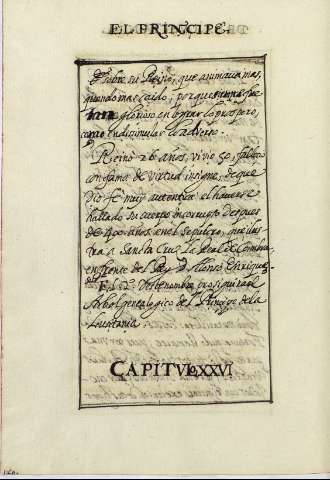 EL PRINCIPE.
sobre su Reino, que animava mas,
quando mas caido, porque
glorioso en lograr lo prospero,
como en disimular lo adverso.
Reinó 26 años, vivio 52, falleció
con fama de virtud insigne, de que
dio fé muy autentica el haverse
hallado su cuerpo incorrupto despues
de 400 años en el sepulcro, que ilus
tra a Sancta Cruz la Real de Coimbra
enfrente del Rey D. Alonso Enriquez
El 2. del nombre prosiguira el
Arbol genealogico del Principe de la
Lusitania.
CAPITVLO XXVI